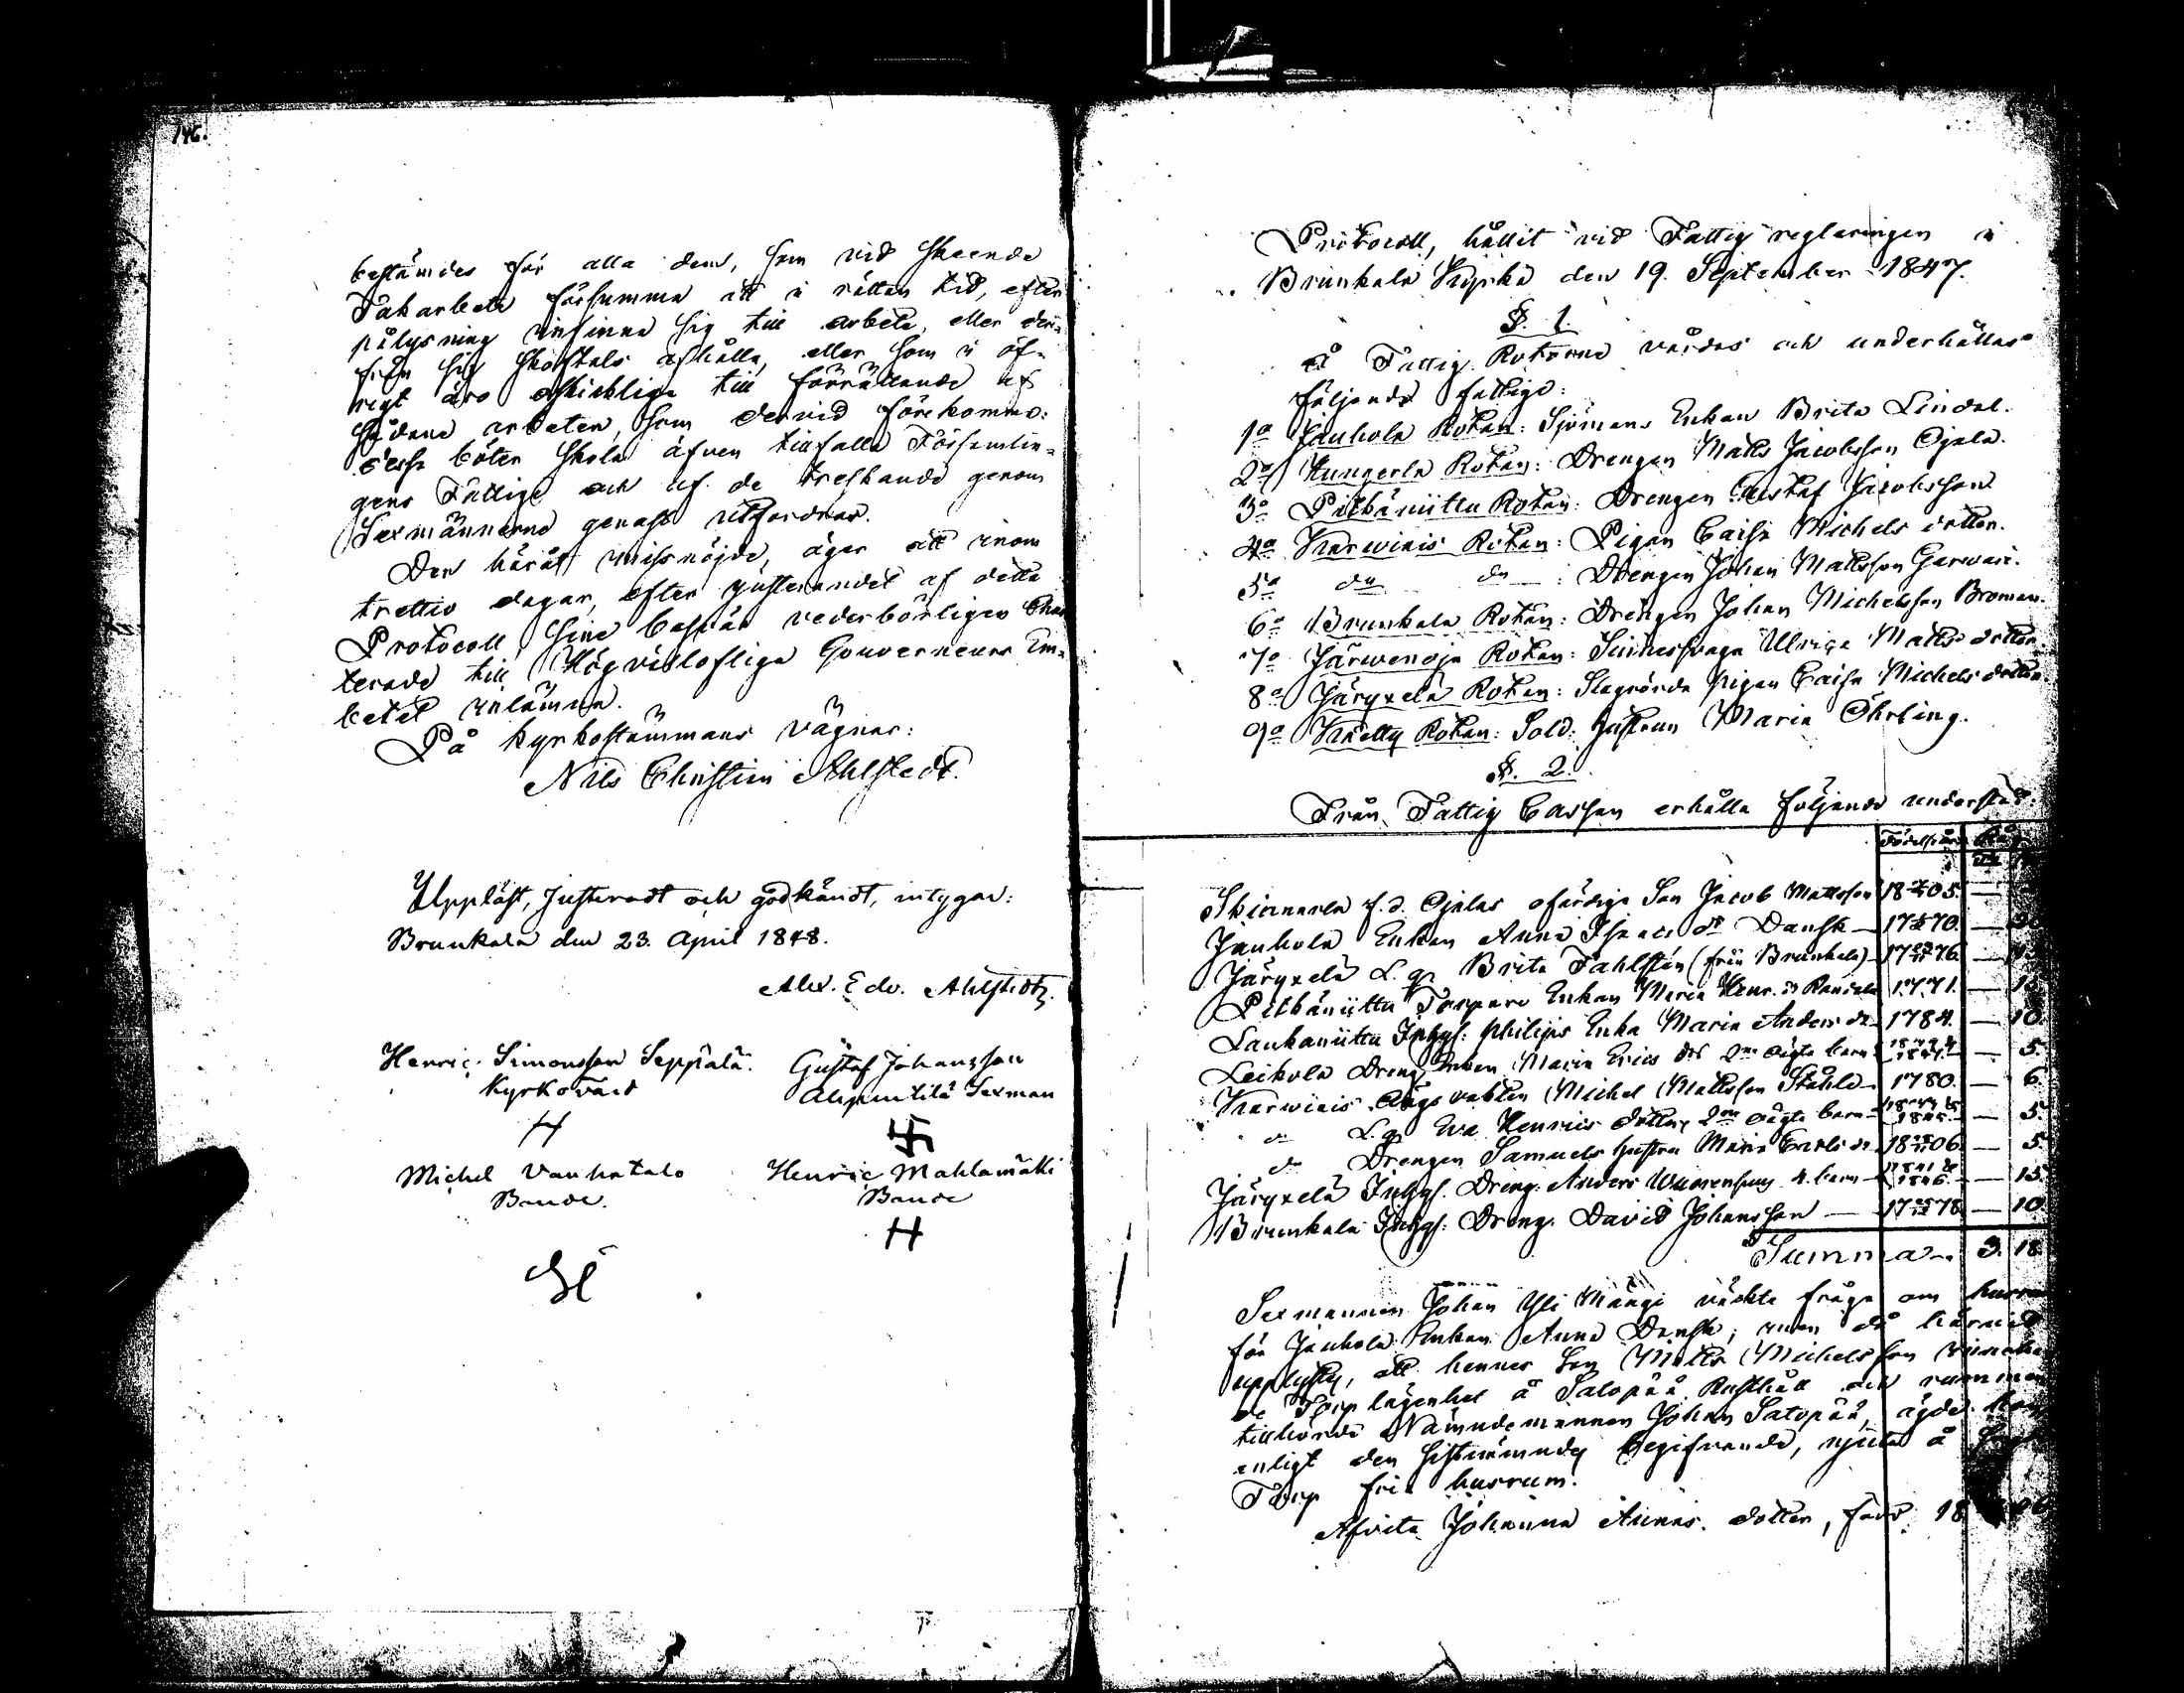 146.
bestämdes för alla dem, som vid skeende
Takarbete försumma att i rättan tid, efter
pålysning infinna sig till arbete, eller der-
ifrån sig skostals afhålla, eller som i öf-
rigt äro oskicklige till förrättande af
sådane arbeten, som dervid förekomma:
desse böter skola äfven tillfalla Församlin-
gens Fattige och af de treskande genom
Sexmännerne genast utfordras.
Den häråt missnöjde, äger att inom
trettio dagar, efter justerandet af detta
Protocoll, sine besvär vederbörligen Char-
terade till Högvällofliga Gouverneurs Em-
betet inlämna.
På Kyrkostämmans vägnar:
Nils Christian Ahlstedt.
Uppläst, Justeradt och godkändt, intygar:
Brunkala den 23. April 1848.
Alex. Edv. Ahlstedt.
Henric Simonsson Seppälä. Gustaf Johansson
Kyrkovärd Sexman
Michel Vanhatalo Henric Mahlamäki
Bonde. Bonde
Protocoll, hållit vid Fattig regleringen i
Brunkala Kyrka den 19. September 1847.
§. 1.
Å Fattig Rotarne vårdas och underhållas
följande fattige:
1o Jauhola Rotan: Sjömans Enkan Brita Lindal.
2o Kungerla Rotan: Drengen Matts Jacobsson Ojala.
3o Pitkäniittu Rotan: Drengen Gustaf Jacobsson
4o Karwiais Rotan: Pigan Caisa Michels dotter.
5o do do: Drengen Johan Mattsson Garvari.
6o Brunkala Rotan: Drengen Johan Michelsson Broman.
7o Järwenoja Rotan: Sinnessvaga Ulrica Matts dotter.
8o Järyxelä Rotan: Slagrörda pigan Caisa Michels dotter.
9o Kretty Rotan: Sold. hustrun Maria Öhrling.
§. 2.
Från Fattig Cassan erhålla följande understöd:
Födelseår
Skinnarla f. d. Ojalas ofärdiga Son Jacob Mattsson 1805. —
Jauhola Enkan Anna Isaacs dr Dansk — 1770. — 20.
Järyxelä L. q. Brita Fahlsten (från Brunkala) — 1776. — 15.
Pitkäniittu Torpare Enkan Maria Henr. dr 1771. — 10.
Laukaniittu Inhys. Philips Enka Maria Anders dr. 1784. — 10.
Leikola Dreng Enkan Maria Erics drs 2ne oägta barn — 5.
Karwiais Michel Mattsson Ståhle — 1780. — 6.
do L. q. Eva Henrics dotters 2ne oägta barn — 1845. — 5.
do Drengen Samuels hustru Maria Carls dr 1806. — 5.
Järyxelä Inhys. Dreng. Anders 4. barn — 1846. — 15.
Brunkala Inhys. Dreng. David Johansson — 1778. — 10.
Summa 3. 18.
Sexmannen Johan Yli Mängi väckte fråga om husrum
för Jauhola Enkan Anna Dansk; men då härvid
upplystes, att hennes Son Matts Michelsson innehar-
de Torp lägenhet å Salopää Rusthåll och rummen
tillhörde Nämndemannen Johan Salopää, ägde hon
enligt den sistnämndes begifvande, njuta å
Torp fri husrum.
Afvita Johanna Annas dotter, född 18